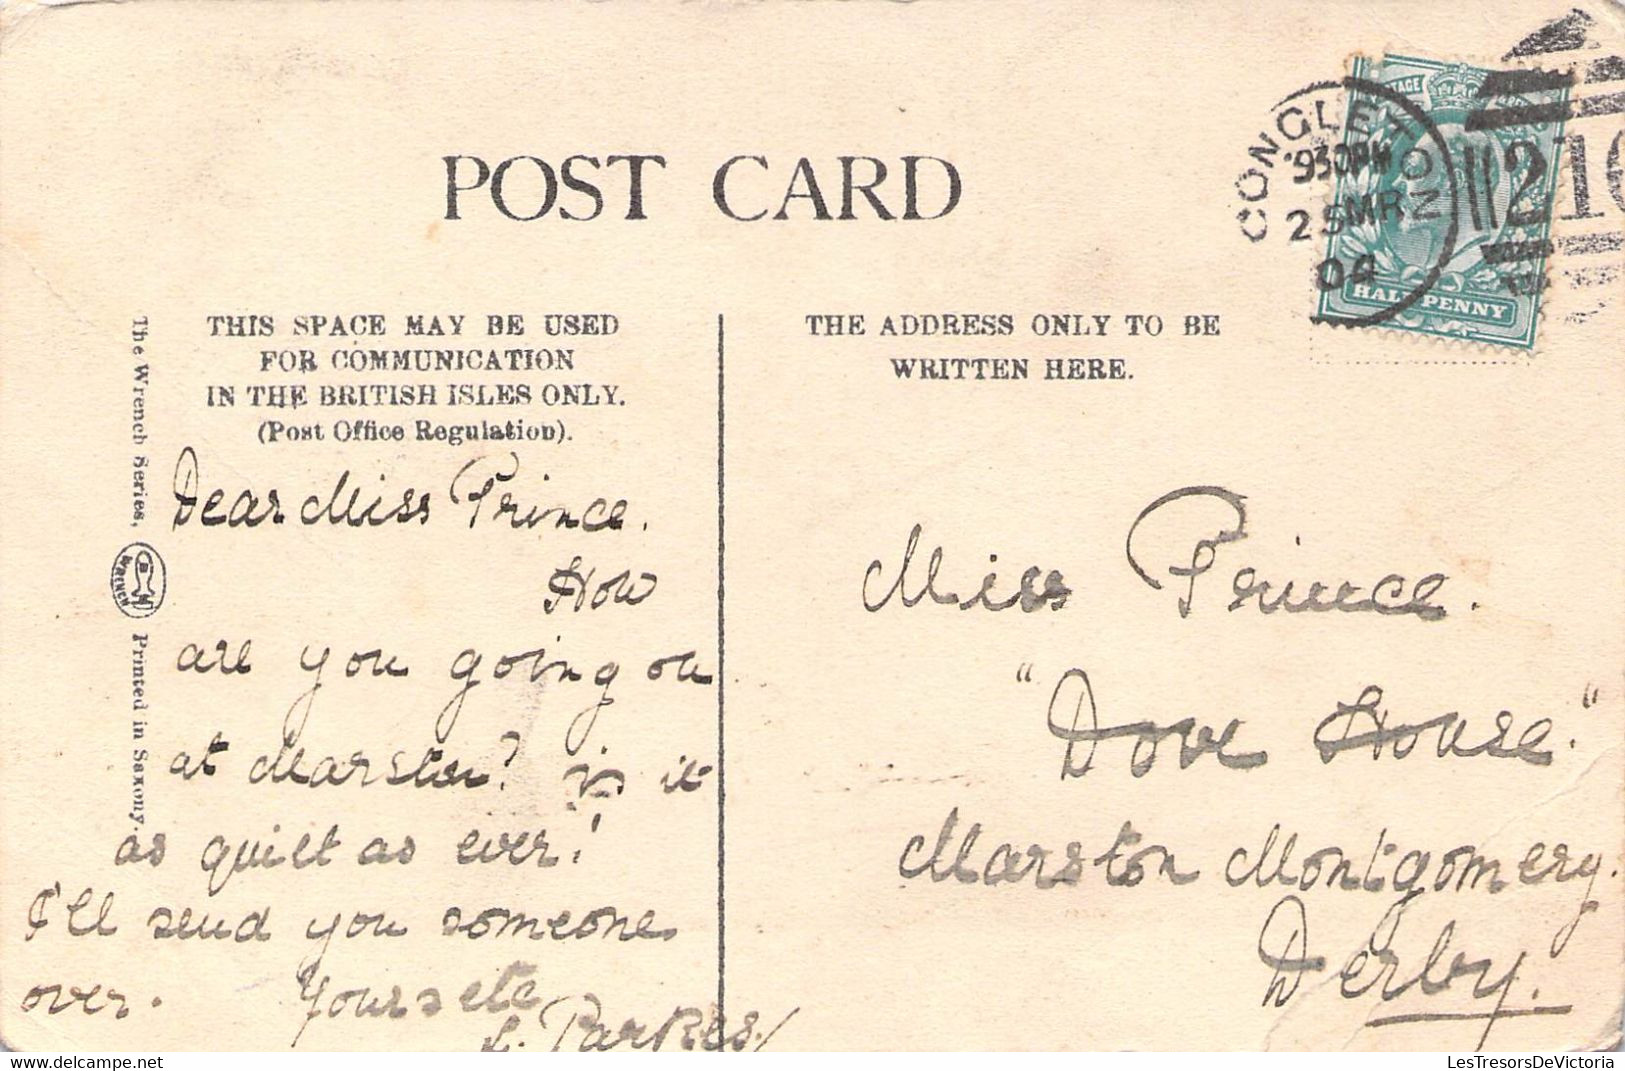 POST CARD
CONGLETON
9 30 PM
25 MR
04
210
POSTAGE
HALFPENNY
THIS SPACE MAY BE USED
FOR COMMUNICATION
IN THE BRITISH ISLES ONLY.
(Post Office Regulation).
THE ADDRESS ONLY TO BE
WRITTEN HERE.
The Wrench Series,
WRENCH
Printed in Saxony.
Dear Miss Prince.
How
are you going on
at Marston? is it
as quiet as ever!
I'll send you someone
over. Yours etc
L. Parkes.
Miss Prince.
"Dove House."
Marston Montgomery.
Derby.
delcampe.net
LesTresorsDeVictoria